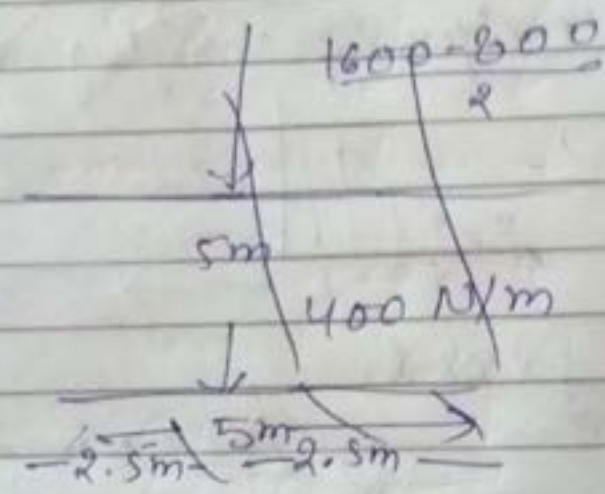 1600-800
2
5m
400 N/m
5m
2.5m 2.5m